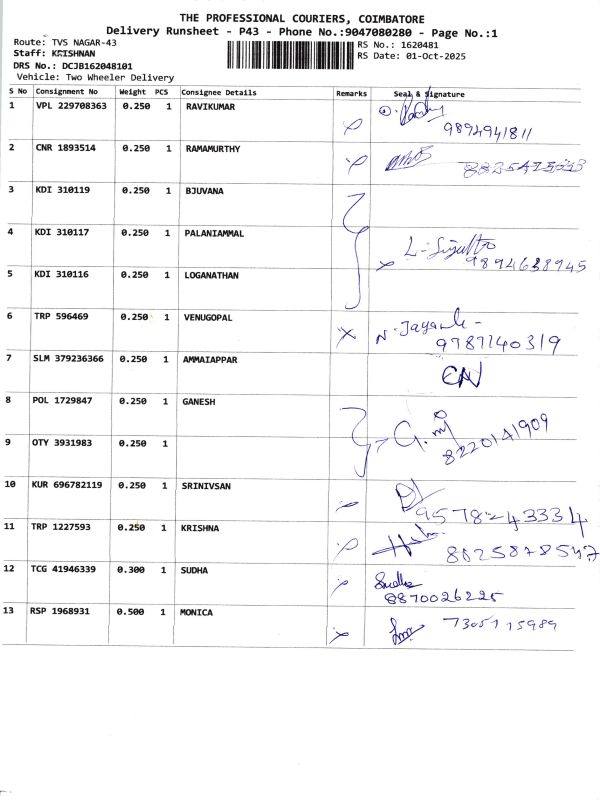 THE PROFESSIONAL COURIERS, COIMBATORE
Delivery Runsheet - P43 - Phone No.:9047080280 - Page No.:1
Route: TVS NAGAR-43
Staff: KRISHNAN
DRS No.: DCJB162048101
Vehicle: Two Wheeler Delivery
RS No.: 1620481
RS Date: 01-Oct-2025
S No Consignment No Weight PCS Consignee Details Remarks Seal & Signature
1 VPL 229708363 0.250 1 RAVIKUMAR
9894941811
2 CNR 1893514 0.250 1 RAMAMURTHY
3 KDI 310119 0.250 1 BJUVANA
4 KDI 310117 0.250 1 PALANIAMMAL
9894638945
5 KDI 310116 0.250 1 LOGANATHAN
6 TRP 596469 0.250 1 VENUGOPAL
9787140319
7 SLM 379236366 0.250 1 AMMAIAPPAR
8 POL 1729847 0.250 1 GANESH
8220141909
9 OTY 3931983 0.250 1
10 KUR 696782119 0.250 1 SRINIVSAN
9578243334
11 TRP 1227593 0.250 1 KRISHNA
12 TCG 41946339 0.300 1 SUDHA
Sudha
8870026225
13 RSP 1968931 0.500 1 MONICA
7305115989